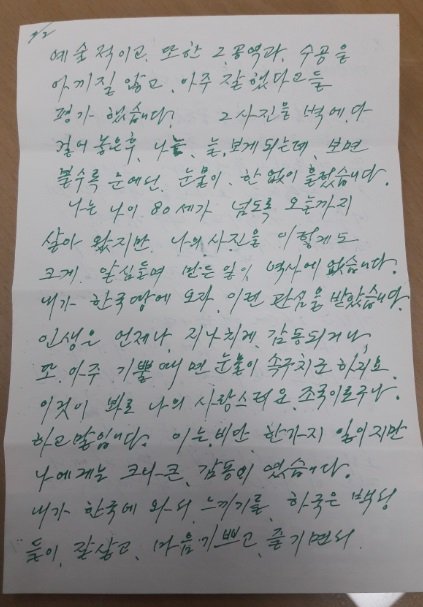 예술적이고, 또한 그 공역과, 수공을
아끼질 않고, 아주 잘 했다고들
평가 했습니다. 그 사진을 벽에다
걸어 놓은후, 나는, 늘, 보게 되는데, 보면
볼수록 눈에선, 눈물이, 한 없이 흘렀습니다.
나는 나이 80세가 넘도록 오늘까지
살아 왔지만, 나의 사진을 이렇게도
크게, 알심들여 만든 일이 력사에 없습니다.
내가 한국땅에 오자, 이런 관심을 받았습니다.
인생은 언제나, 지나치게, 감동되거나,
또, 아주 기쁠 때면 눈물이 솟구치군 하지요.
이것이 봐로 나의 사랑스러운, 조국이로구나,
하고 말입니다. 이는 비만, 한가지 일이지만
나에게는 크나큰, 감동이 였습니다.
내가 한국에 와서, 느끼기를, 한국은 백성
들이, 잘살고, 마음기쁘고, 즐기면서